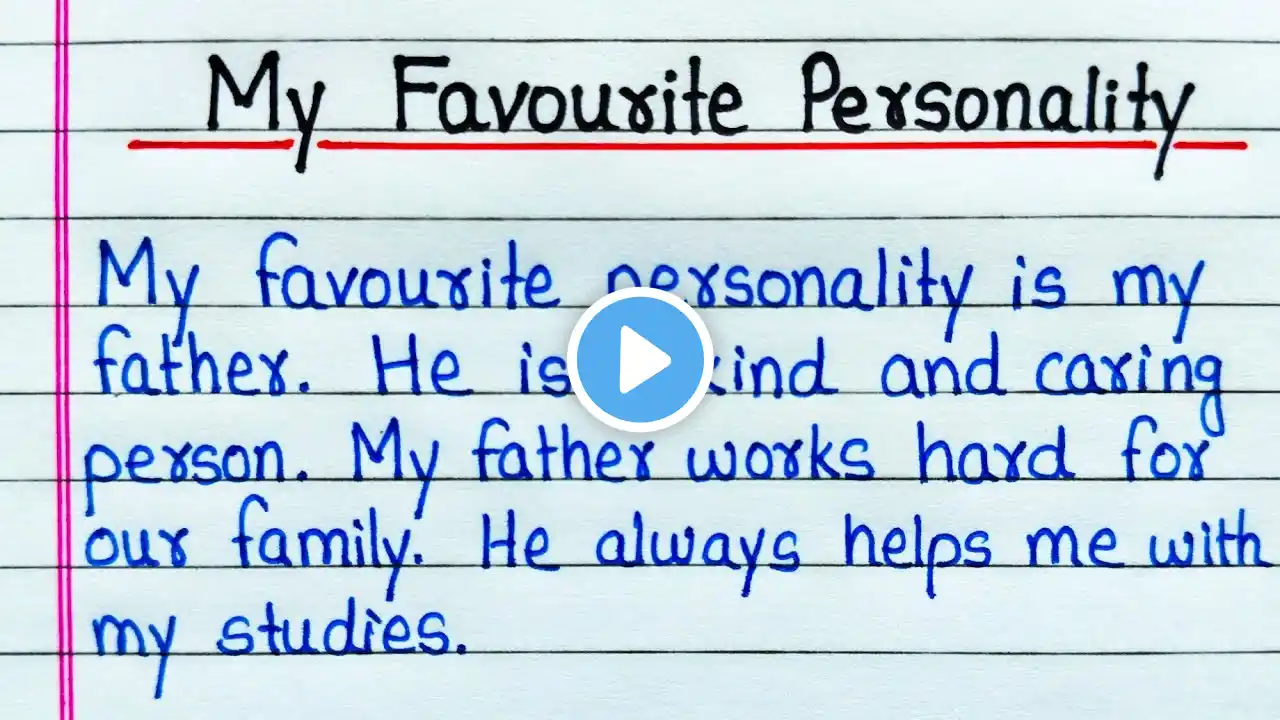 My Favourite Personality
My favourite personality is my
father. He is kind and caring
person. My father works hard for
our family. He always helps me with
my studies.